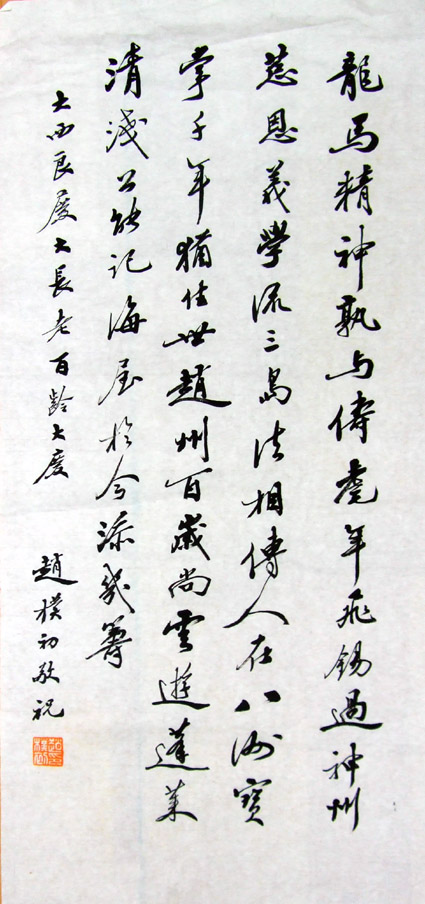 龍馬精神孰与儔虎年飛錫過神州
慈恩義學流三島法相傳人在八洲寶
掌千年猶住世趙州百歲尚雲遊蓬萊
清淺公能記海屋於今添幾籌
大西良慶大長老百齡大慶
趙樸初敬祝